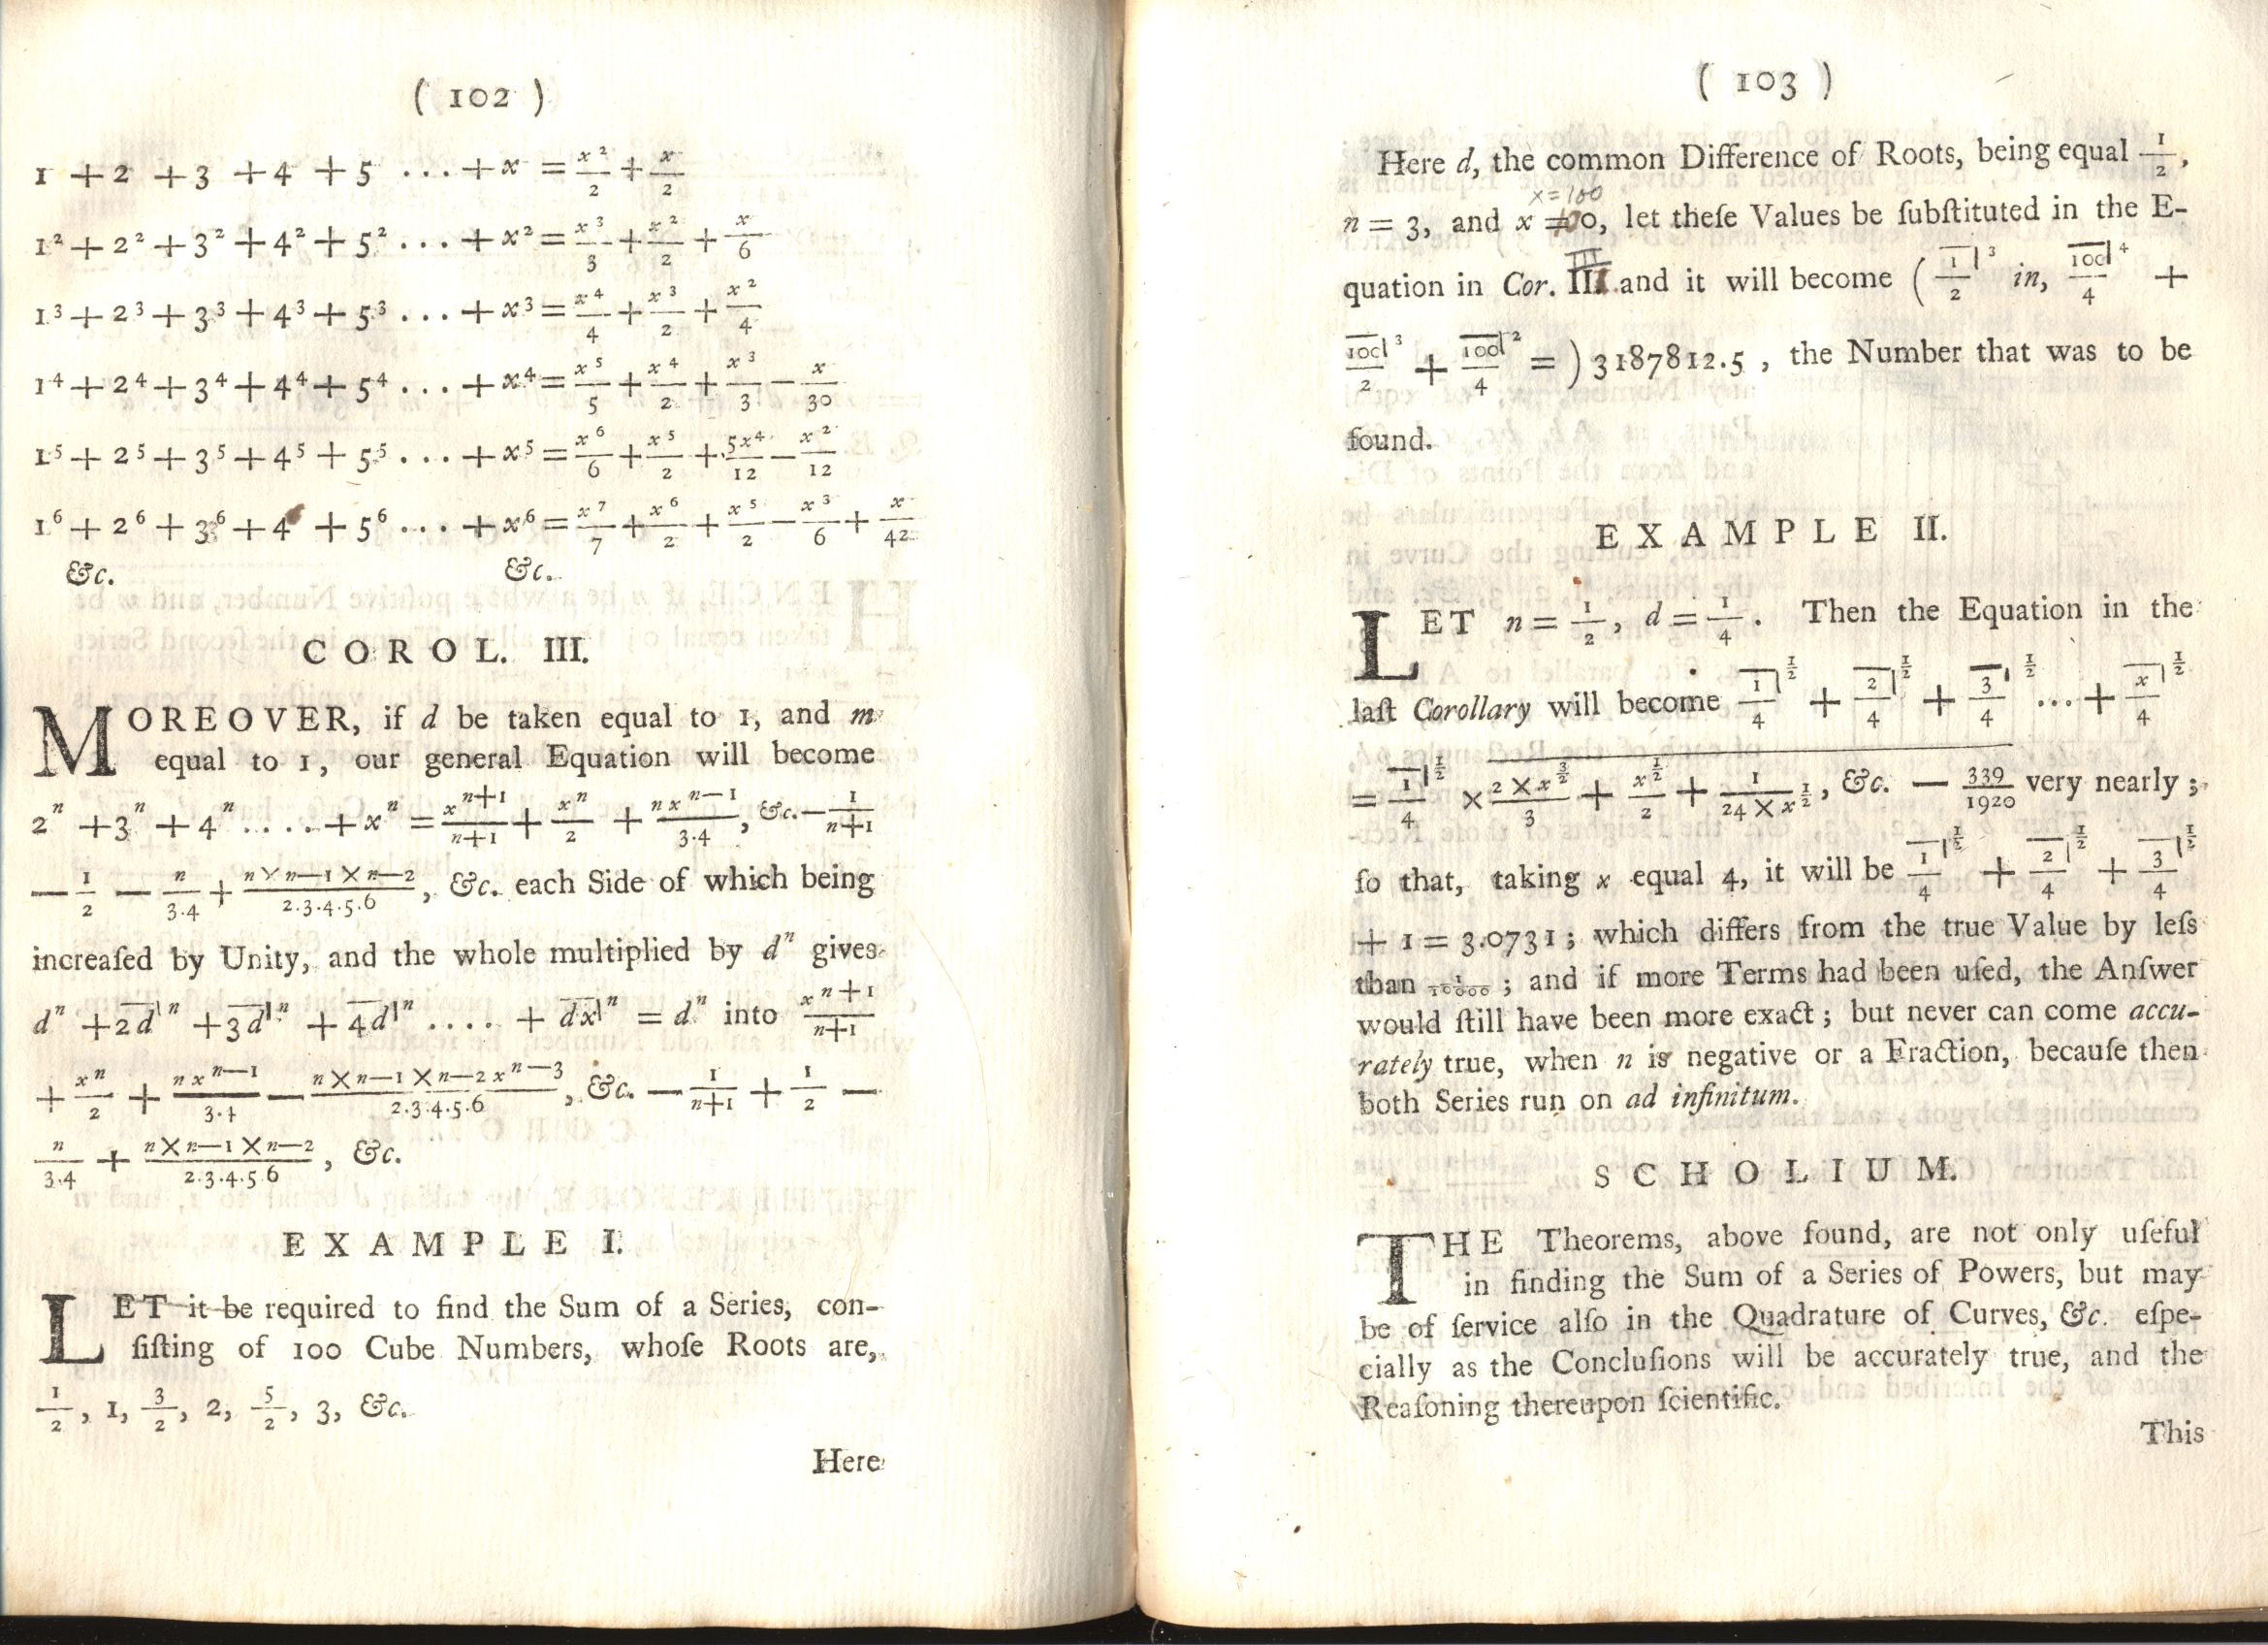 ( 102 )
1 + 2 + 3 + 4 + 5 ... + x = x²/2 + x/2
1² + 2² + 3² + 4² + 5² ... + x² = x³/3 + x²/2 + x/6
1³ + 2³ + 3³ + 4³ + 5³ ... + x³ = x⁴/4 + x³/2 + x²/4
1⁴ + 2⁴ + 3⁴ + 4⁴ + 5⁴ ... + x⁴ = x⁵/5 + x⁴/2 + x³/3 − x/30
1⁵ + 2⁵ + 3⁵ + 4⁵ + 5⁵ ... + x⁵ = x⁶/6 + x⁵/2 + 5x⁴/12 − x²/12
1⁶ + 2⁶ + 3⁶ + 4⁶ + 5⁶ ... + x⁶ = x⁷/7 + x⁶/2 + x⁵/2 − x³/6 + x/42
&c. &c.
COROL. III.
MOREOVER, if d be taken equal to 1, and m
equal to 1, our general Equation will become
2ⁿ + 3ⁿ + 4ⁿ .... + xⁿ = xⁿ⁺¹/n+1 + xⁿ/2 + nxⁿ⁻¹/3.4, &c. − 1/n+1
− 1/2 − n/3.4 + n×n−1×n−2/2.3.4.5.6, &c. each Side of which being
increaſed by Unity, and the whole multiplied by dⁿ gives
dⁿ + 2d|ⁿ + 3d|ⁿ + 4d|ⁿ .... + dx|ⁿ = dⁿ into xⁿ⁺¹/n+1
+ xⁿ/2 + nxⁿ⁻¹/3.4 − n×n−1×n−2xⁿ⁻³/2.3.4.5.6, &c. − 1/n+1 + 1/2 −
n/3.4 + n×n−1×n−2/2.3.4.5 6, &c.
EXAMPLE I.
LET it be required to find the Sum of a Series, con-
ſiſting of 100 Cube Numbers, whoſe Roots are,
1/2, 1, 3/2, 2, 5/2, 3, &c.
Here
( 103 )
Here d, the common Difference of Roots, being equal 1/2,
x=100
n = 3, and x = 100, let theſe Values be ſubſtituted in the E-
III
quation in Cor. III and it will become (1/2|³ in, 100|⁴/4 +
100|³/2 + 100|²/4 = ) 3187812.5, the Number that was to be
found.
EXAMPLE II.
LET n = 1/2, d = 1/4. Then the Equation in the
laſt Corollary will become 1/4|^½ + 2/4|^½ + 3/4|^½ ... + x/4|^½
= 1/4|^½ × 2×x^(3/2)/3 + x^½/2 + 1/24×x^½, &c. − 339/1920 very nearly;
ſo that, taking x equal 4, it will be 1/4|^½ + 2/4|^½ + 3/4|^½
+ 1 = 3.0731; which differs from the true Value by leſs
than 1/10000; and if more Terms had been uſed, the Anſwer
would ſtill have been more exact; but never can come accu-
rately true, when n is negative or a Fraction, becauſe then
both Series run on ad infinitum.
SCHOLIUM.
THE Theorems, above found, are not only uſeful
in finding the Sum of a Series of Powers, but may
be of ſervice alſo in the Quadrature of Curves, &c. eſpe-
cially as the Concluſions will be accurately true, and the
Reaſoning thereupon ſcientific.
This